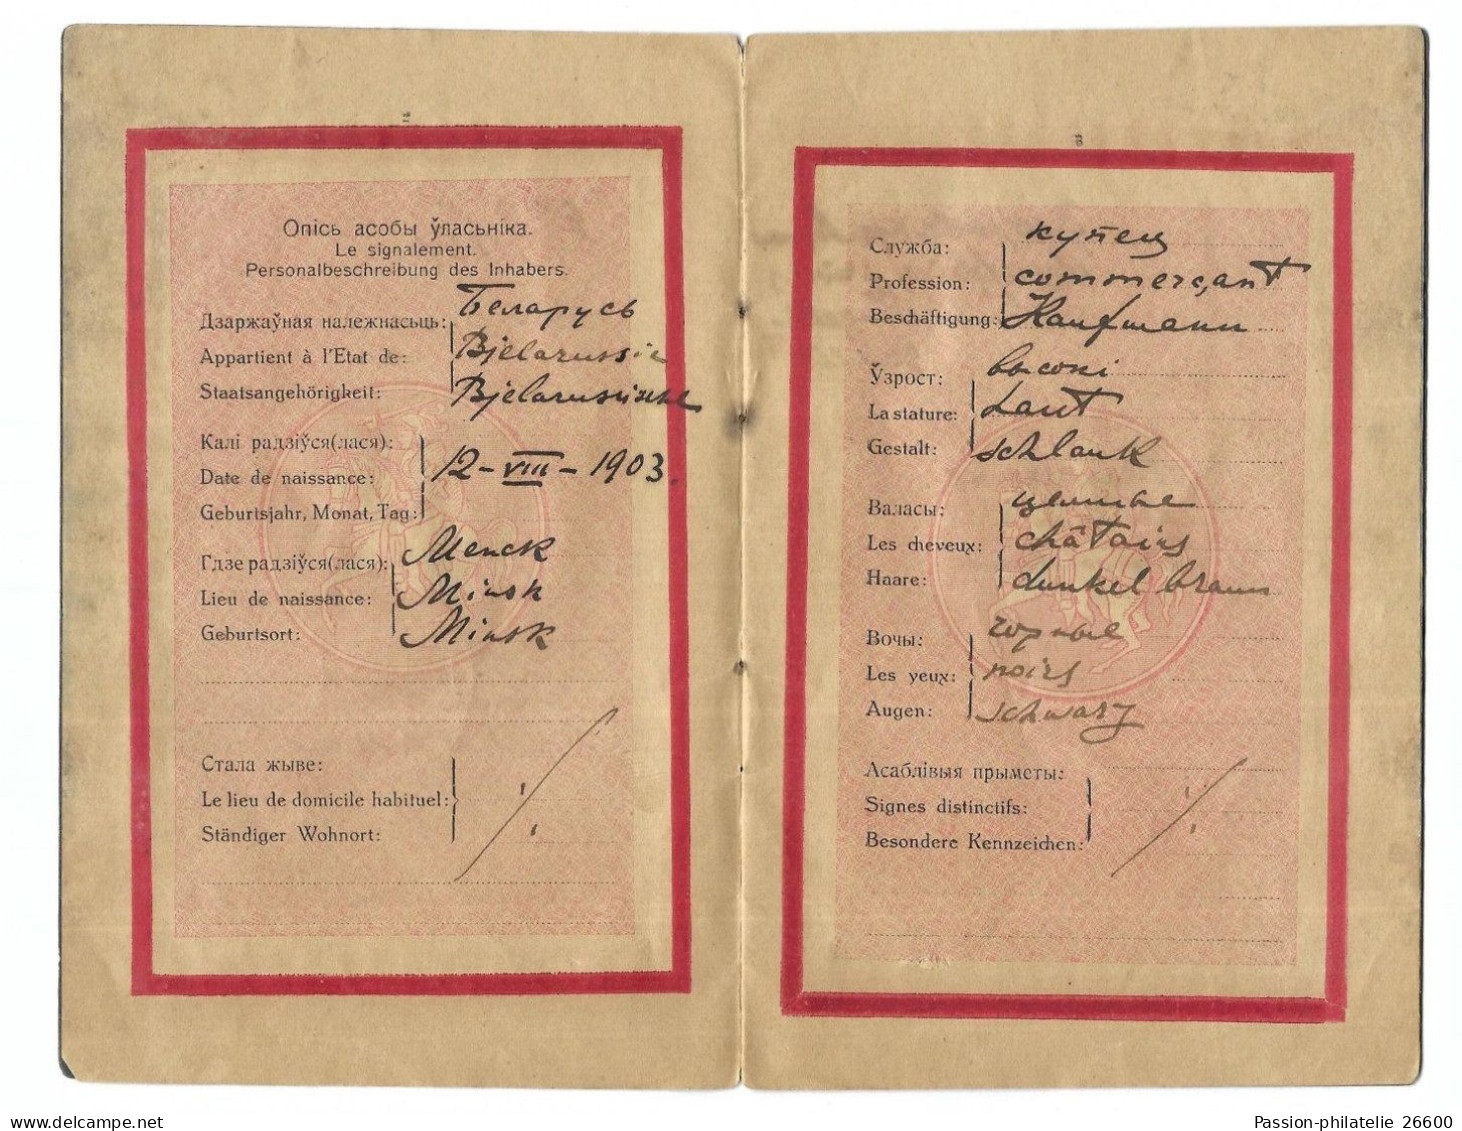 Опісь асобы ўласьніка.
Le signalement.
Personalbeschreibung des Inhabers.
Дзаржаўная належнасьць: Беларусь
Appartient à l'Etat de: Bjelarussie
Staatsangehörigkeit: Bjelarussische
Калі радзіўся(лася):
Date de naissance: 12-VIII-1903.
Geburtsjahr, Monat, Tag:
Гдзе радзіўся(лася): Менск
Lieu de naissance: Minsk
Geburtsort: Minsk
Стала жыве:
Le lieu de domicile habituel:
Ständiger Wohnort:
8
Служба: купец
Profession: commerçant
Beschäftigung: Kaufmann
Ўзрост: высокі
La stature: haut
Gestalt: schlank
Валасы:
Les cheveux: châtains
Haare: dunkel braun
Вочы: чорные
Les yeux: noirs
Augen: schwarz
Асаблівыя прыметы:
Signes distinctifs:
Besondere Kennzeichen:
Passion-philatelie 26600